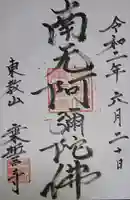 令和二年六月二十日
南无阿彌陀佛
東敎山
乗誓寺